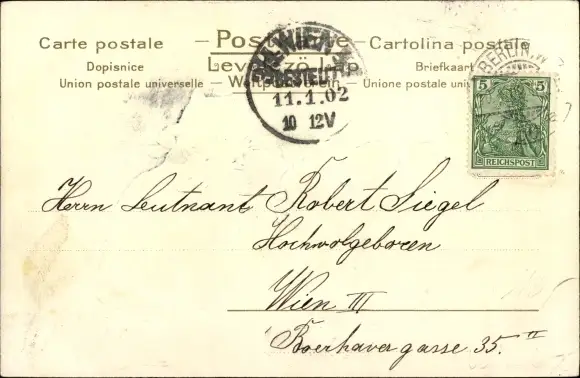 Carte postale — Postkarte — Cartolina postale
Dopisnice Levelező-Lap Briefkaart
Union postale universelle — Weltpostverein — Unione postale
WIEN
BESTELLT
11.1.02
10 12V
BERLIN.W
5 5
REICHSPOST
Herrn Leutnant Robert Siegel
Hochwolgeboren
Wien III
Boerhavergasse 35.